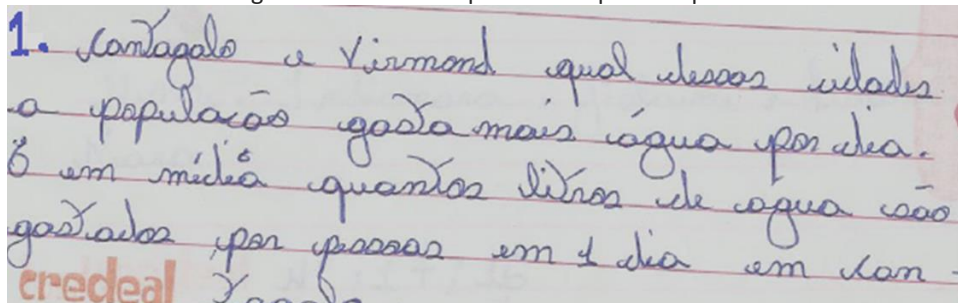 1. Cantagalo e Virmond qual dessas cidades
a população gasta mais água por dia.
E em média quantos litros de água são
gastados por pessoas em 1 dia em Can-
credeal tagalo